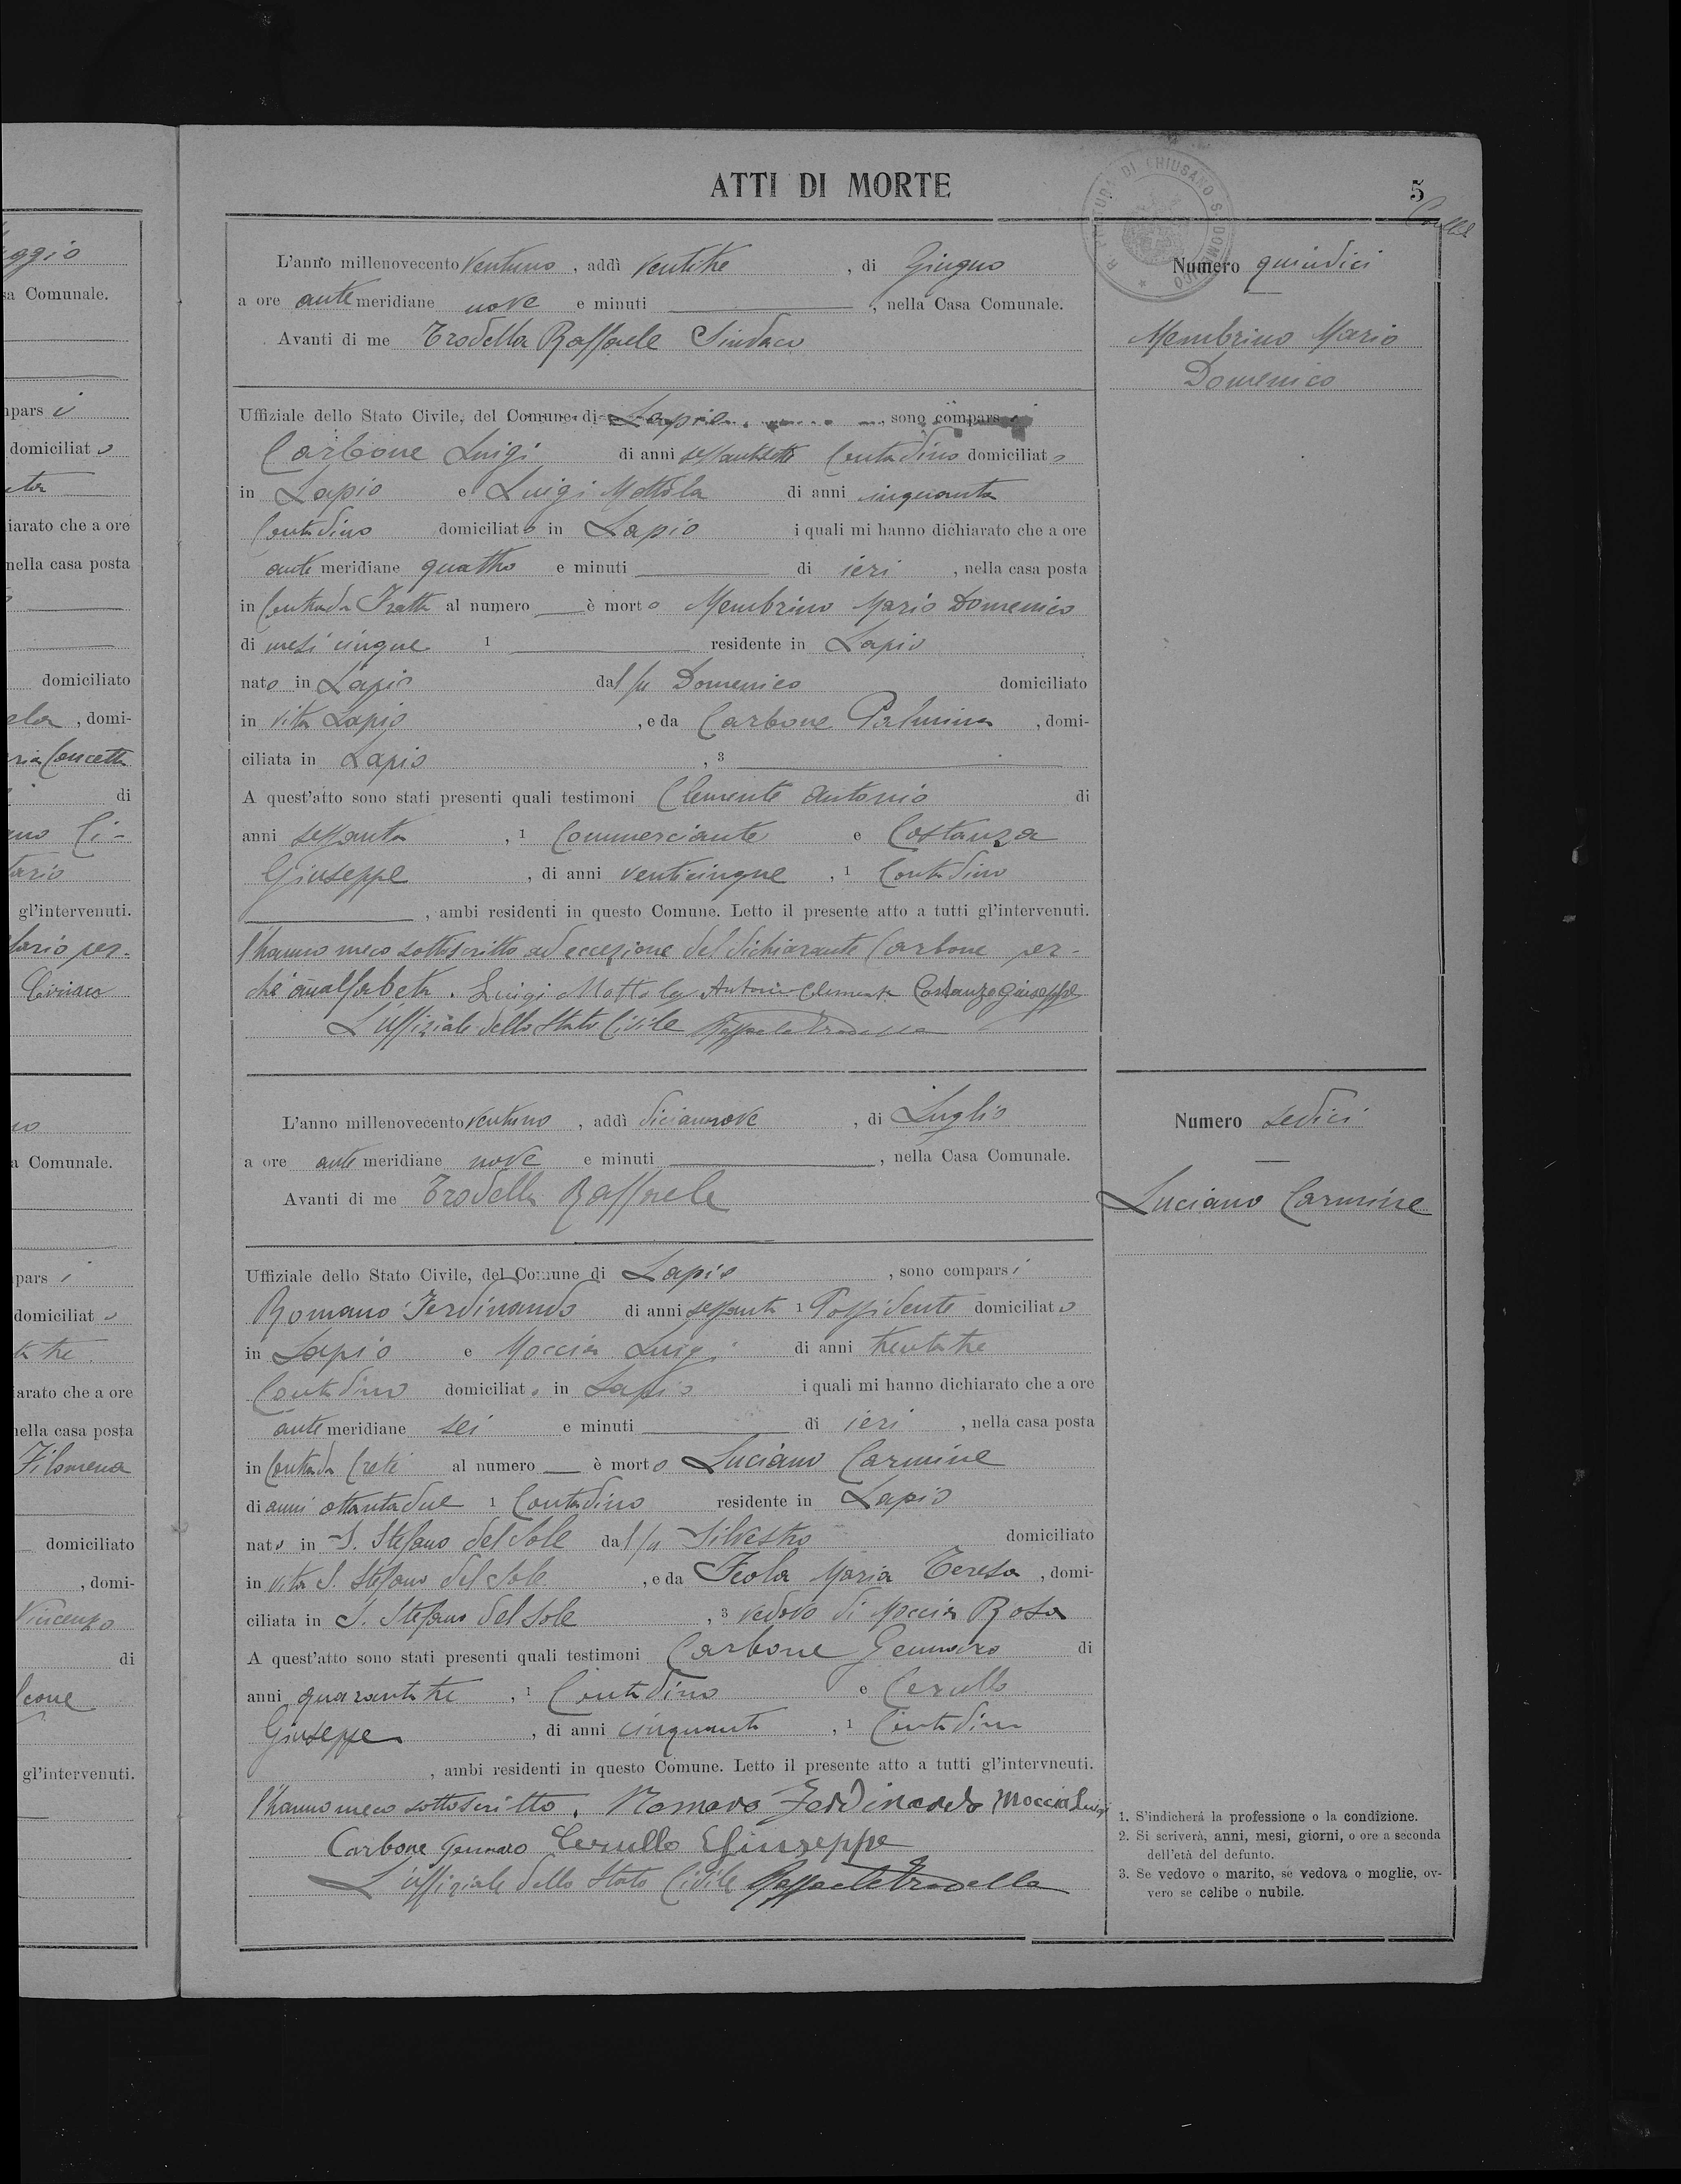 aggio
sa Comunale.
pars i
domiciliat o
iarato che a ore
nella casa posta
domiciliato
, domi-
ria Concetta
di
gl'intervenuti.
Ciriaco
a Comunale.
pars i
domiciliat o
arato che a ore
nella casa posta
Filomena
domiciliato
, domi-
Vincenzo
di
gl'intervenuti.
ATTI DI MORTE
5
R. PRETURA DI CHIUSANO S. DOMENICO
L'anno millenovecento ventuno , addì ventitre , di Giugno
a ore antemeridiane nove e minuti , nella Casa Comunale.
Avanti di me Trodella Raffaele Sindaco
Uffiziale dello Stato Civile, del Comune di Lapio , sono comparsi
Carbone Luigi di anni sessantasette Contadino domiciliato
in Lapio e Luigi Mottola di anni cinquanta
Contadino domiciliato in Lapio i quali mi hanno dichiarato che a ore
antemeridiane quattro e minuti di ieri , nella casa posta
in Contrada Fratta al numero è morto Membrino Mario Domenico
di mesi cinque 1 residente in Lapio
nato in Lapio dal fu Domenico domiciliato
in vita Lapio , e da Carbone Palmina , domi-
ciliata in Lapio , 3
A quest'atto sono stati presenti quali testimoni Clemente Antonio di
anni sessanta , 1 Commerciante e Costanza
Giuseppe , di anni venticinque , 1 Contadino
, ambi residenti in questo Comune. Letto il presente atto a tutti gl'intervenuti.
l'hanno meco sottoscritto ad eccezione del dichiarante Carbone per-
chè analfabeta. Luigi Mottola Antonio Clemente Costanza Giuseppe
L'uffiziale dello Stato Civile Raffaele Trodella
Numero quindici
Membrino Mario
Domenico
L'anno millenovecento ventuno , addì diciannove , di Luglio
a ore antemeridiane nove e minuti , nella Casa Comunale.
Avanti di me Trodella Raffaele
Uffiziale dello Stato Civile, del Comune di Lapio , sono comparsi
Romano Ferdinando di anni sessanta 1 Possidente domiciliato
in Lapio e Moccia Luigi di anni trentatre
Contadino domiciliato in Lapio i quali mi hanno dichiarato che a ore
antemeridiane sei e minuti di ieri , nella casa posta
in Contrada Creti al numero è morto Luciano Carmine
di anni ottantadue 1 Contadino residente in Lapio
nato in S. Stefano del Sole dal fu Silvestro domiciliato
in vita S. Stefano del Sole , e da Feola Maria Teresa , domi-
ciliata in S. Stefano del Sole , 3 vedovo di Moccia Rosa
A quest'atto sono stati presenti quali testimoni Carbone Gennaro di
anni quarantatre , 1 Contadino e Cerullo
Giuseppe , di anni cinquanta , 1 Contadino
, ambi residenti in questo Comune. Letto il presente atto a tutti gl'intervneuti.
l'hanno meco sottoscritto. Romano Ferdinando Moccia Luigi
Carbone Gennaro Cerullo Giuseppe
L'uffiziale dello Stato Civile Raffaele Trodella
Numero sedici
Luciano Carmine
1. S'indicherà la professione o la condizione.
2. Si scriverà, anni, mesi, giorni, o ore a seconda
dell'età del defunto.
3. Se vedovo o marito, se vedova o moglie, ov-
vero se celibe o nubile.